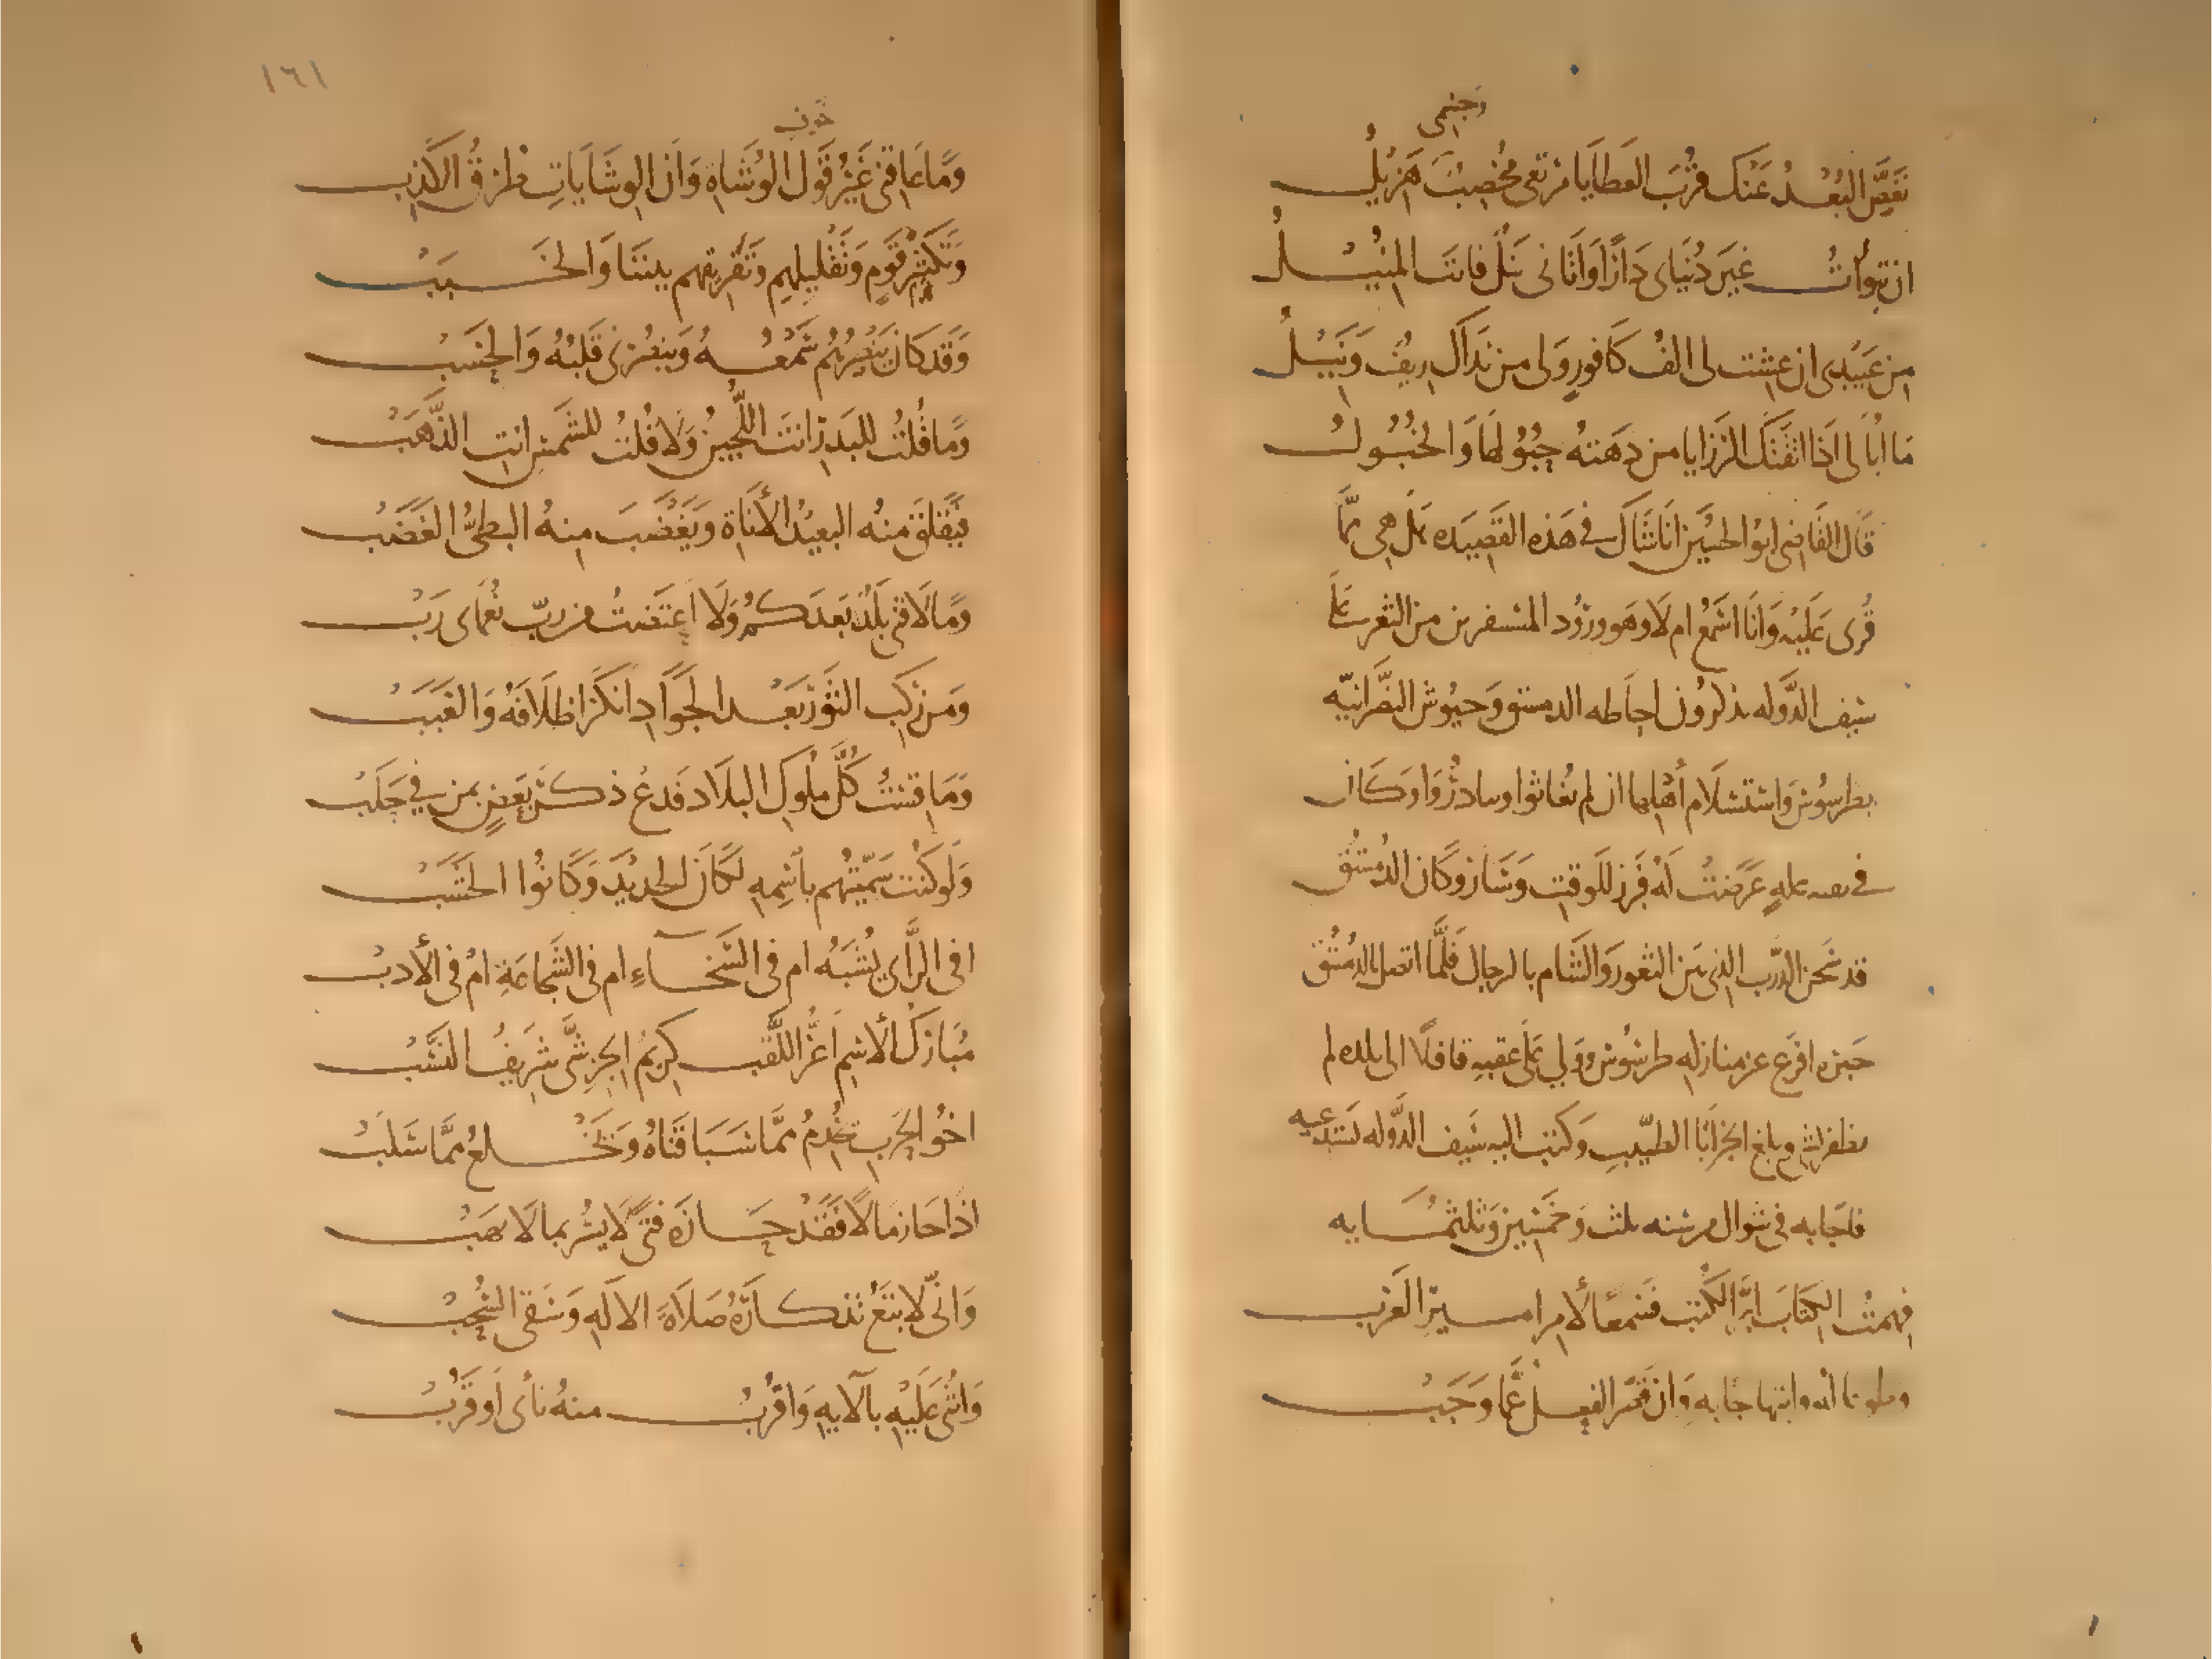 وجسمي
نغص البعد عنك قرب العطايا مرتعي مخصب هزيل
ان تبوأت غير دنياى دارا واتانى نيل فانت المنيل
من عبيدى ان عشت لى الف كافور ولى من نداك ريف ونيل
ما ابالى اذا اتقتك الرزايا من دهته حبولها والخبول
قال القاضى ابو الحسين انا شاك في هذه القصيده هل هى مما
قرى عليه وانا اسمع ام لا وهو ورود المستنفرين من الثغر على
سيف الدوله يذكرون احاطه الدمستق وجيوش النصرانيه
بطرسوس واستسلام أهلها ان لم يغاثوا ويبادروا وكان
في عله عرضت له فبرز للوقت وسار وكان الدمستق
قد شحن الدرب الذى بين الثغور والشام بالرجال فلما اتصل بالدمستق
خبره افرج عن منازله طرسوس وولى على عقبه قافلا الى بلده لم
يظفر بشى وبلغ الخبر ابا الطيب وكتب اليه سيف الدوله يستدعيه
فاجابه فى شوال من سنه ثلث وخمسين وثلثمايه
فهمت الكتاب ابر الكتب فسمعا لأمر امير العرب
وطوعا له وابتهاجا به وان قصر الفعل عما وجب
١٦١
خوف
وما عاقنى غير قول الوشاة وان الوشايات طرق الكذب
وتكثير قوم وتقليلهم وتقريبهم بيننا والخبب
وقد كان ينصرهم سمعه وينصرنى قلبه والحسب
وما قلت للبدر انت اللجين ولا قلت للشمس انت الذهب
فيقلق منه البعيد الأناة ويغضب منه البطئ الغضب
وما لاقنى بلد بعدكم ولا اعتضت من رب نعماى رب
ومن ركب الثور بعد الجواد انكر اظلافه والغبب
وما قست كل ملوك البلاد فدع ذكر بعض بمن في حلب
ولو كنت سميتهم باسمه لكان الحديد وكانوا الخشب
افى الرأى يشبه ام فى السخاء ام فى الشجاعة ام فى الأدب
مبارك الأسم اغر اللقب كريم الجرشى شريف النسب
اخو الحرب يخدم مما سبا قناه ويخلع مما سلب
اذا حاز مالا فقد حازه فتى لا يسر بما لا يهب
وانى لاتبع تذكاره صلاة الاله وسقى السحب
واثنى عليه بآلايه واقرب منه نأى او قرب